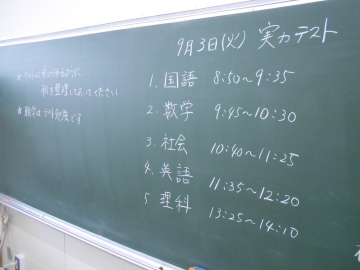 9月3日(火) 実力テスト
1. 国語 8:50〜9:35
2. 数学 9:45〜10:30
3. 社会 10:40〜11:25
4. 英語 11:35〜12:20
5 理科 13:25〜14:10
机を整理しておいてください